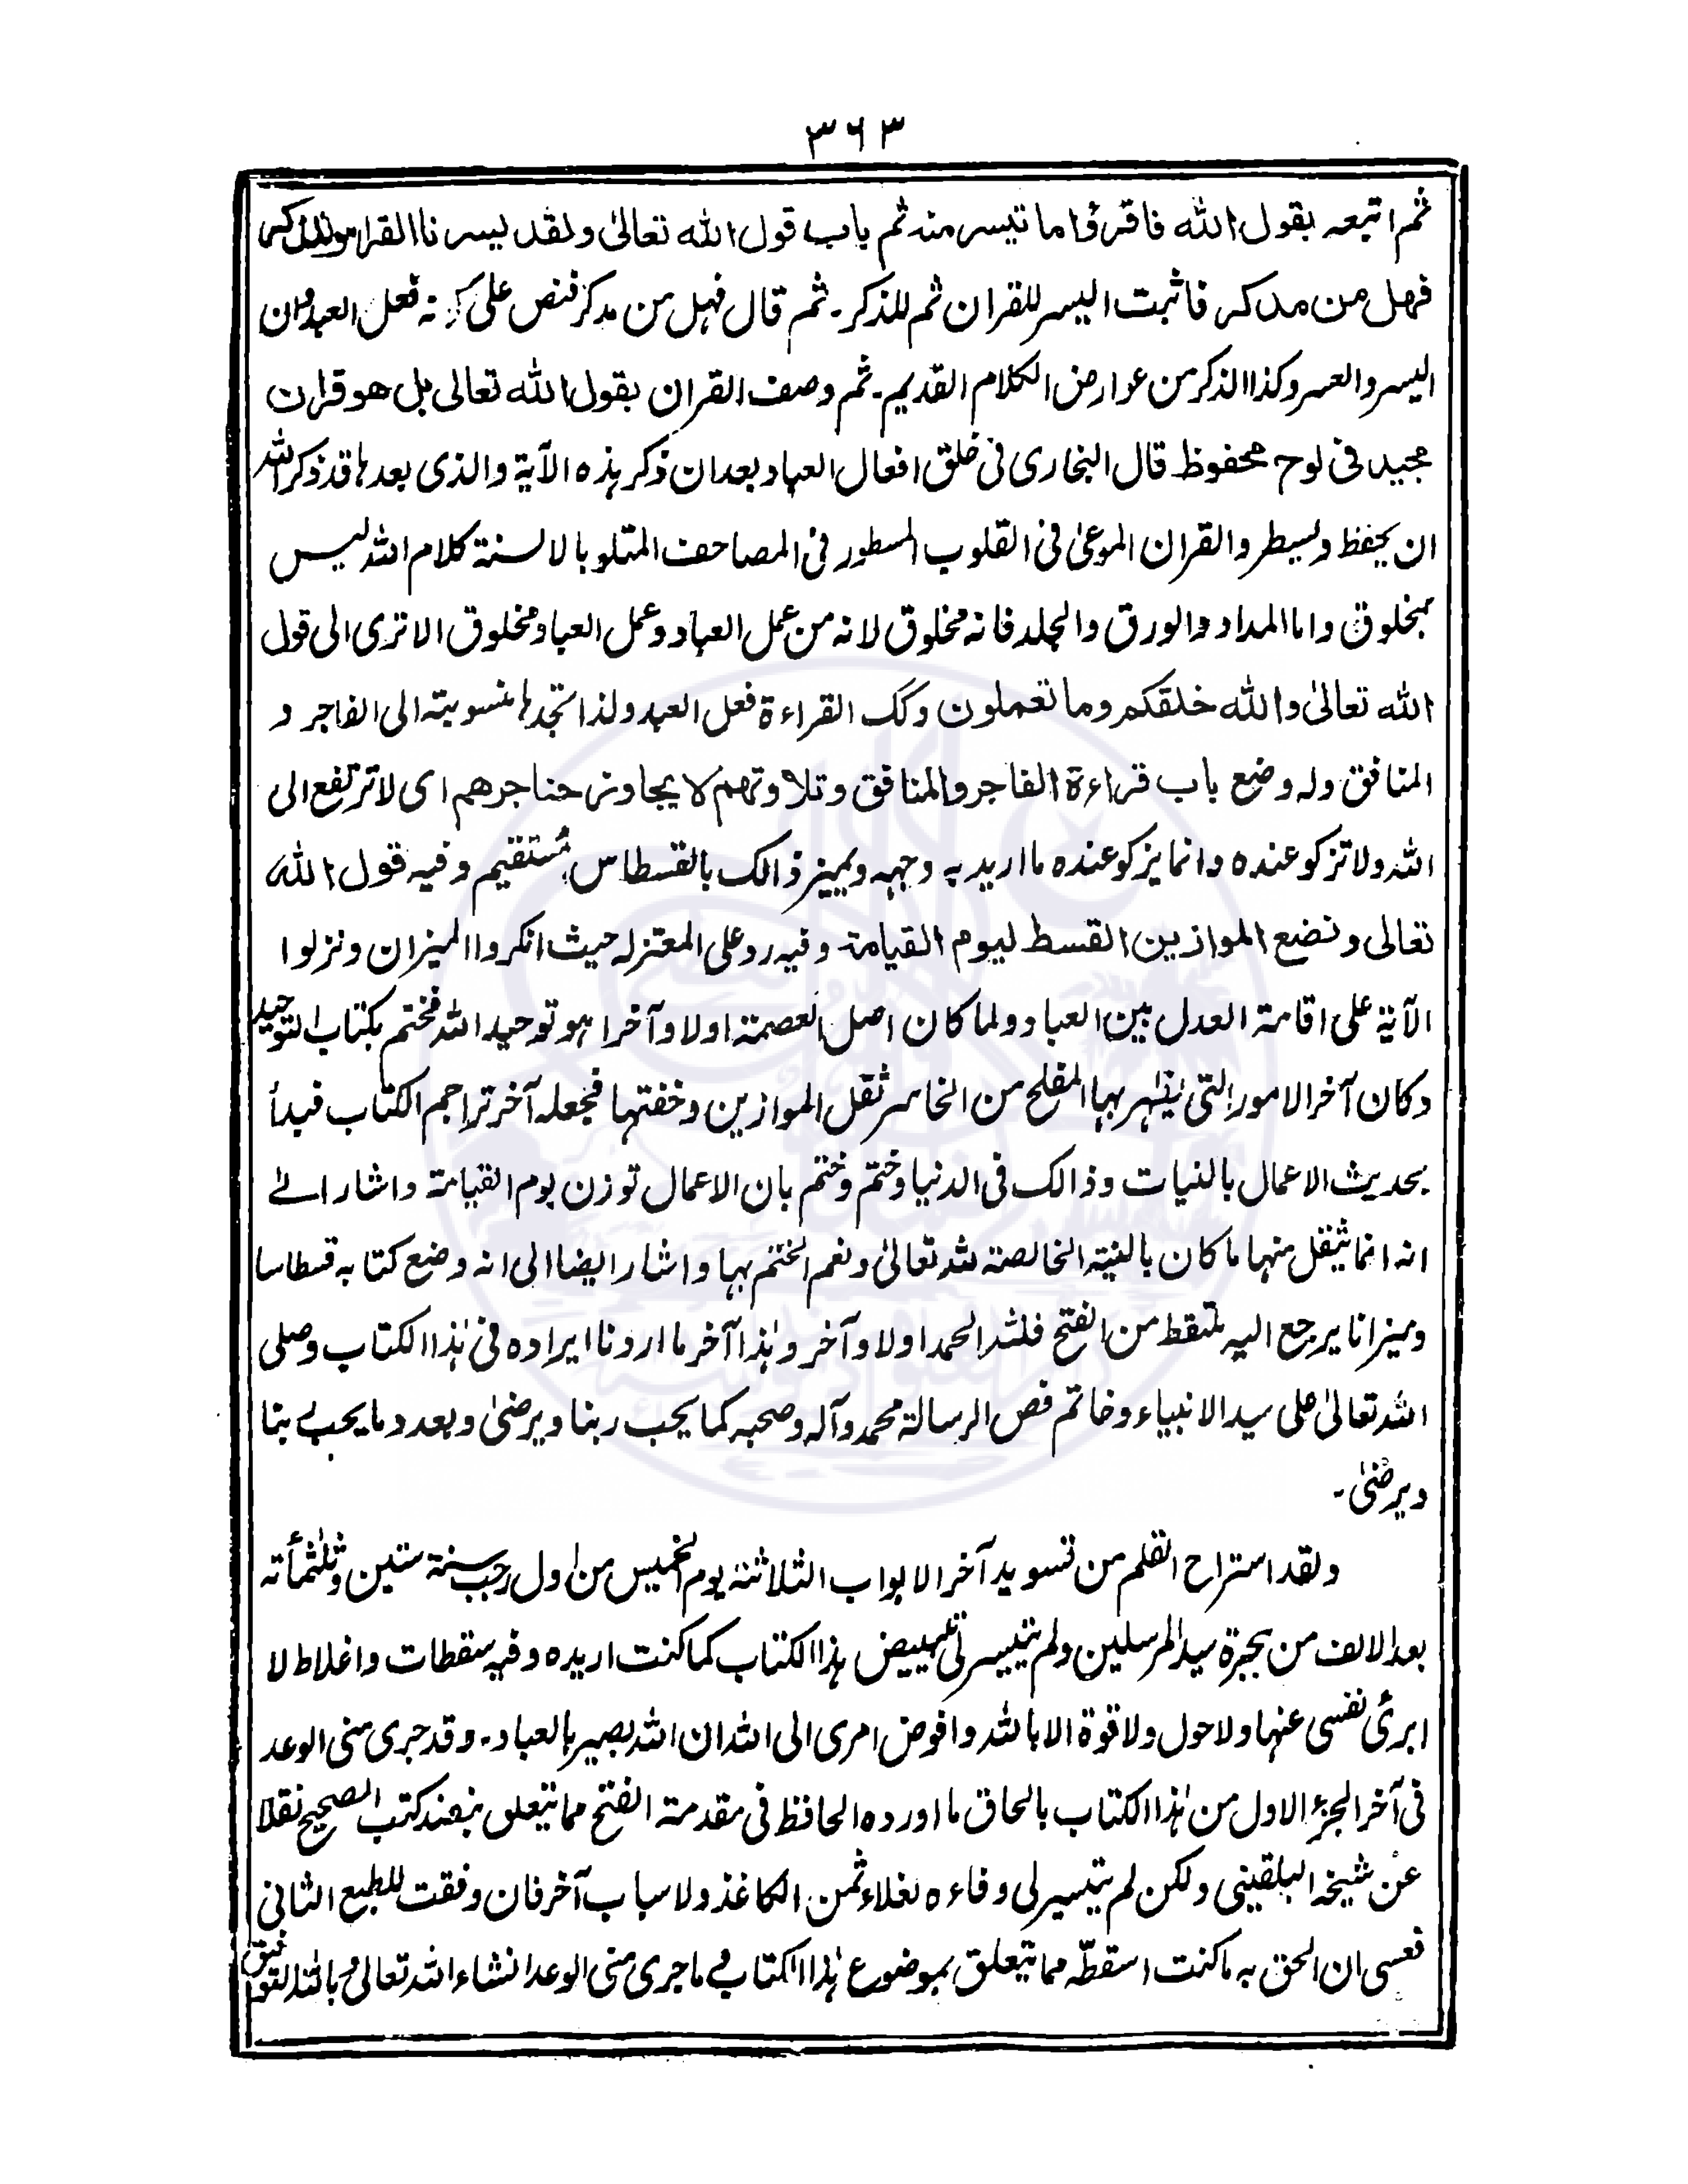 ۳۶۳
ثم اتبعه بقول الله فاقرؤا ما تيسر منه ثم باب قول الله تعالىٰ ولقد يسرنا القرآن للذكر
فهل من مدكر فاثبت اليسر للقران ثم للذكر۔ ثم قال فهل من مدكر فنص على كونه فعل العبد وان
اليسر والعسر وكذا الذكر من عوارض الكلام القديم۔ ثم وصف القران بقول الله تعالى بل هو قرآن
مجيد فى لوح محفوظ قال البخارى فى خلق افعال العباد بعد ان ذكر هذه الآية والذى بعدها قد ذكر الله
ان يحفظ ويسطر والقران الموعىٰ فى القلوب المسطور فى المصاحف المتلو بالالسنة كلام الله ليس
بمخلوق واما المداد والورق والجلد فانه مخلوق لانه من عمل العباد وعمل العباد مخلوق الا ترى الى قول
الله تعالىٰ والله خلقكم وما تعملون وكك القراءة فعل العبد ولذا تجدها منسوبة الى الفاجر و
المنافق وله وضع باب قراءة الفاجر والمنافق وتلاوتهم لا يجاوز حناجرهم اى لا ترتفع الى
الله ولا تزكو عنده وانما يزكو عنده ما اريد به وجهه ويميز ذالك بالقسطاس مستقيم وفيه قول الله
تعالى ونضع الموازين القسط ليوم القيامة وفيه رد على المعتزله حيث انكروا الميزان ونزلوا
الآية على اقامة العدل بين العباد ولما كان اصل العصمة اولا وآخرا هو توحيد الله فختم بكتاب التوحيد
وكان آخر الامور التى يظهر بها المفلح من الخاسر ثقل الموازين وخفتها فجعله آخر تراجم الكتاب فبدأ
بحديث الاعمال بالنيات وذالك فى الدنيا وختم وختم بان الاعمال توزن يوم القيامة واشار الے
انه انما يثقل منها ما كان بالنية الخالصة لله تعالىٰ ونعم الختم بها واشار ايضا الى انه وضع كتابه قسطاسا
وميزانا يرجع اليه ملتقط من الفتح فلله الحمد اولا وآخر وهٰذا آخر ما اردنا ايراده فى هٰذا الكتاب وصلى
الله تعالىٰ على سيد الانبياء وخاتم فص الرسالة محمد وآله وصحبه كما يحب ربنا ويرضىٰ وبعدد ما يحب ربنا
ويرضىٰ۔
ولقد استراح القلم من تسويد آخر الابواب الثلاثة يوم الخميس من اول رجب سنة ستين وثلٰثمأته
بعد الالف من هجرة سيد المرسلين ولم يتيسر لى تبييض هذا الكتاب كما كنت اريده وفيه سقطات واغلاط لا
ابرئ نفسى عنها ولا حول ولا قوة الا بالله وافوض امرى الى الله ان الله بصير بالعباد۔ وقد جرى منى الوعد
فى آخر الجزء الاول من هٰذا الكتاب بالحاق ما اورده الحافظ فى مقدمة الفتح مما يتعلق بنضد كتب الصحيح نقلا
عن شيخه البلقينى ولكن لم يتيسر لى وفاءه لغلاء ثمن الكاغذ ولاسباب آخر فان وفقت للطبع الثانى
فعسى ان الحق به ما كنت اسقطّه مما يتعلق بموضوع هٰذا الكتاب وما جرى منى الوعد انشاء الله تعالىٰ وبالله التوفيق